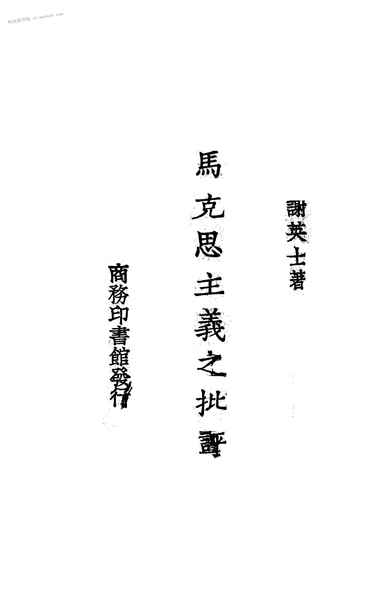 謝英士著
馬克思主義之批評
商務印書館發行